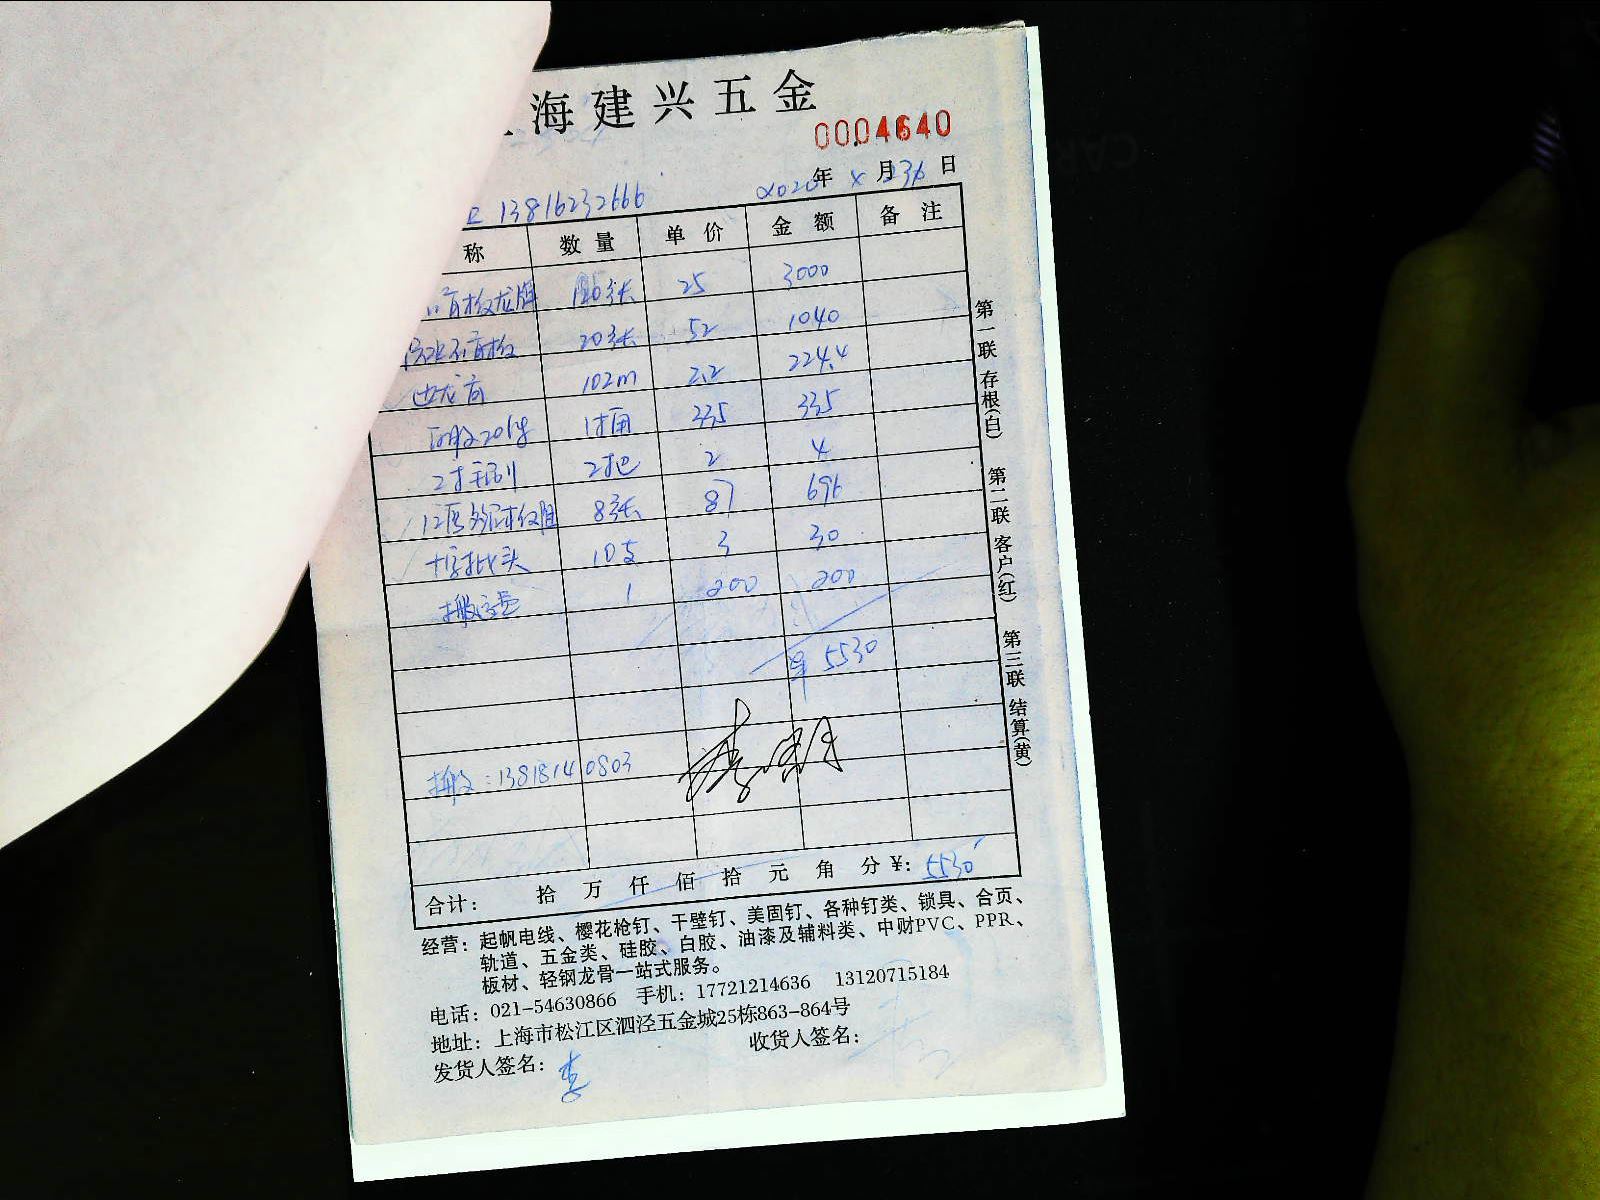 海建兴五金
0004640
13816232666
2020年 x 月 23 日
称 数量 单价 金额 备注
石膏板龙牌 120张 25 3000
石膏板 20张 52 1040
边龙骨 102m 2.2 224.4
1桶 335 335
2把 2 4
12厘 8张 87 696
十字批头 10支 3 30
搬运费 1 200 200
5530
搬运：13818140803
合计： 拾 万 仟 佰 拾 元 角 分 ¥: 5530
经营：起帆电线、樱花枪钉、干壁钉、美固钉、各种钉类、锁具、合页、
轨道、五金类、硅胶、白胶、油漆及辅料类、中财PVC、PPR、
板材、轻钢龙骨一站式服务。
电话：021-54630866 手机：17721214636 13120715184
地址：上海市松江区泗泾五金城25栋863-864号
发货人签名：李 收货人签名：
第一联 存根(白) 第二联 客户(红) 第三联 结算(黄)